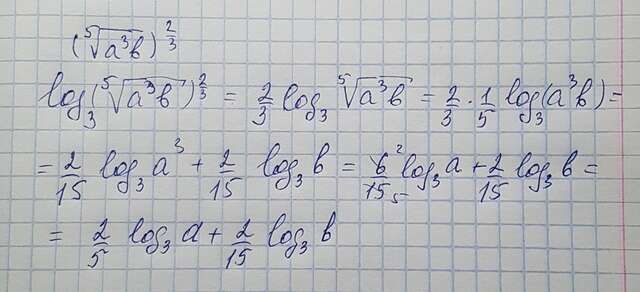 (⁵√(a³b))^(2/3)
log₃(⁵√(a³b))^(2/3) = 2/3 log₃ ⁵√(a³b) = 2/3 · 1/5 log₃(a³b) =
= 2/15 log₃ a³ + 2/15 log₃ b = 6²/15₅ log₃ a + 2/15 log₃ b =
= 2/5 log₃ a + 2/15 log₃ b